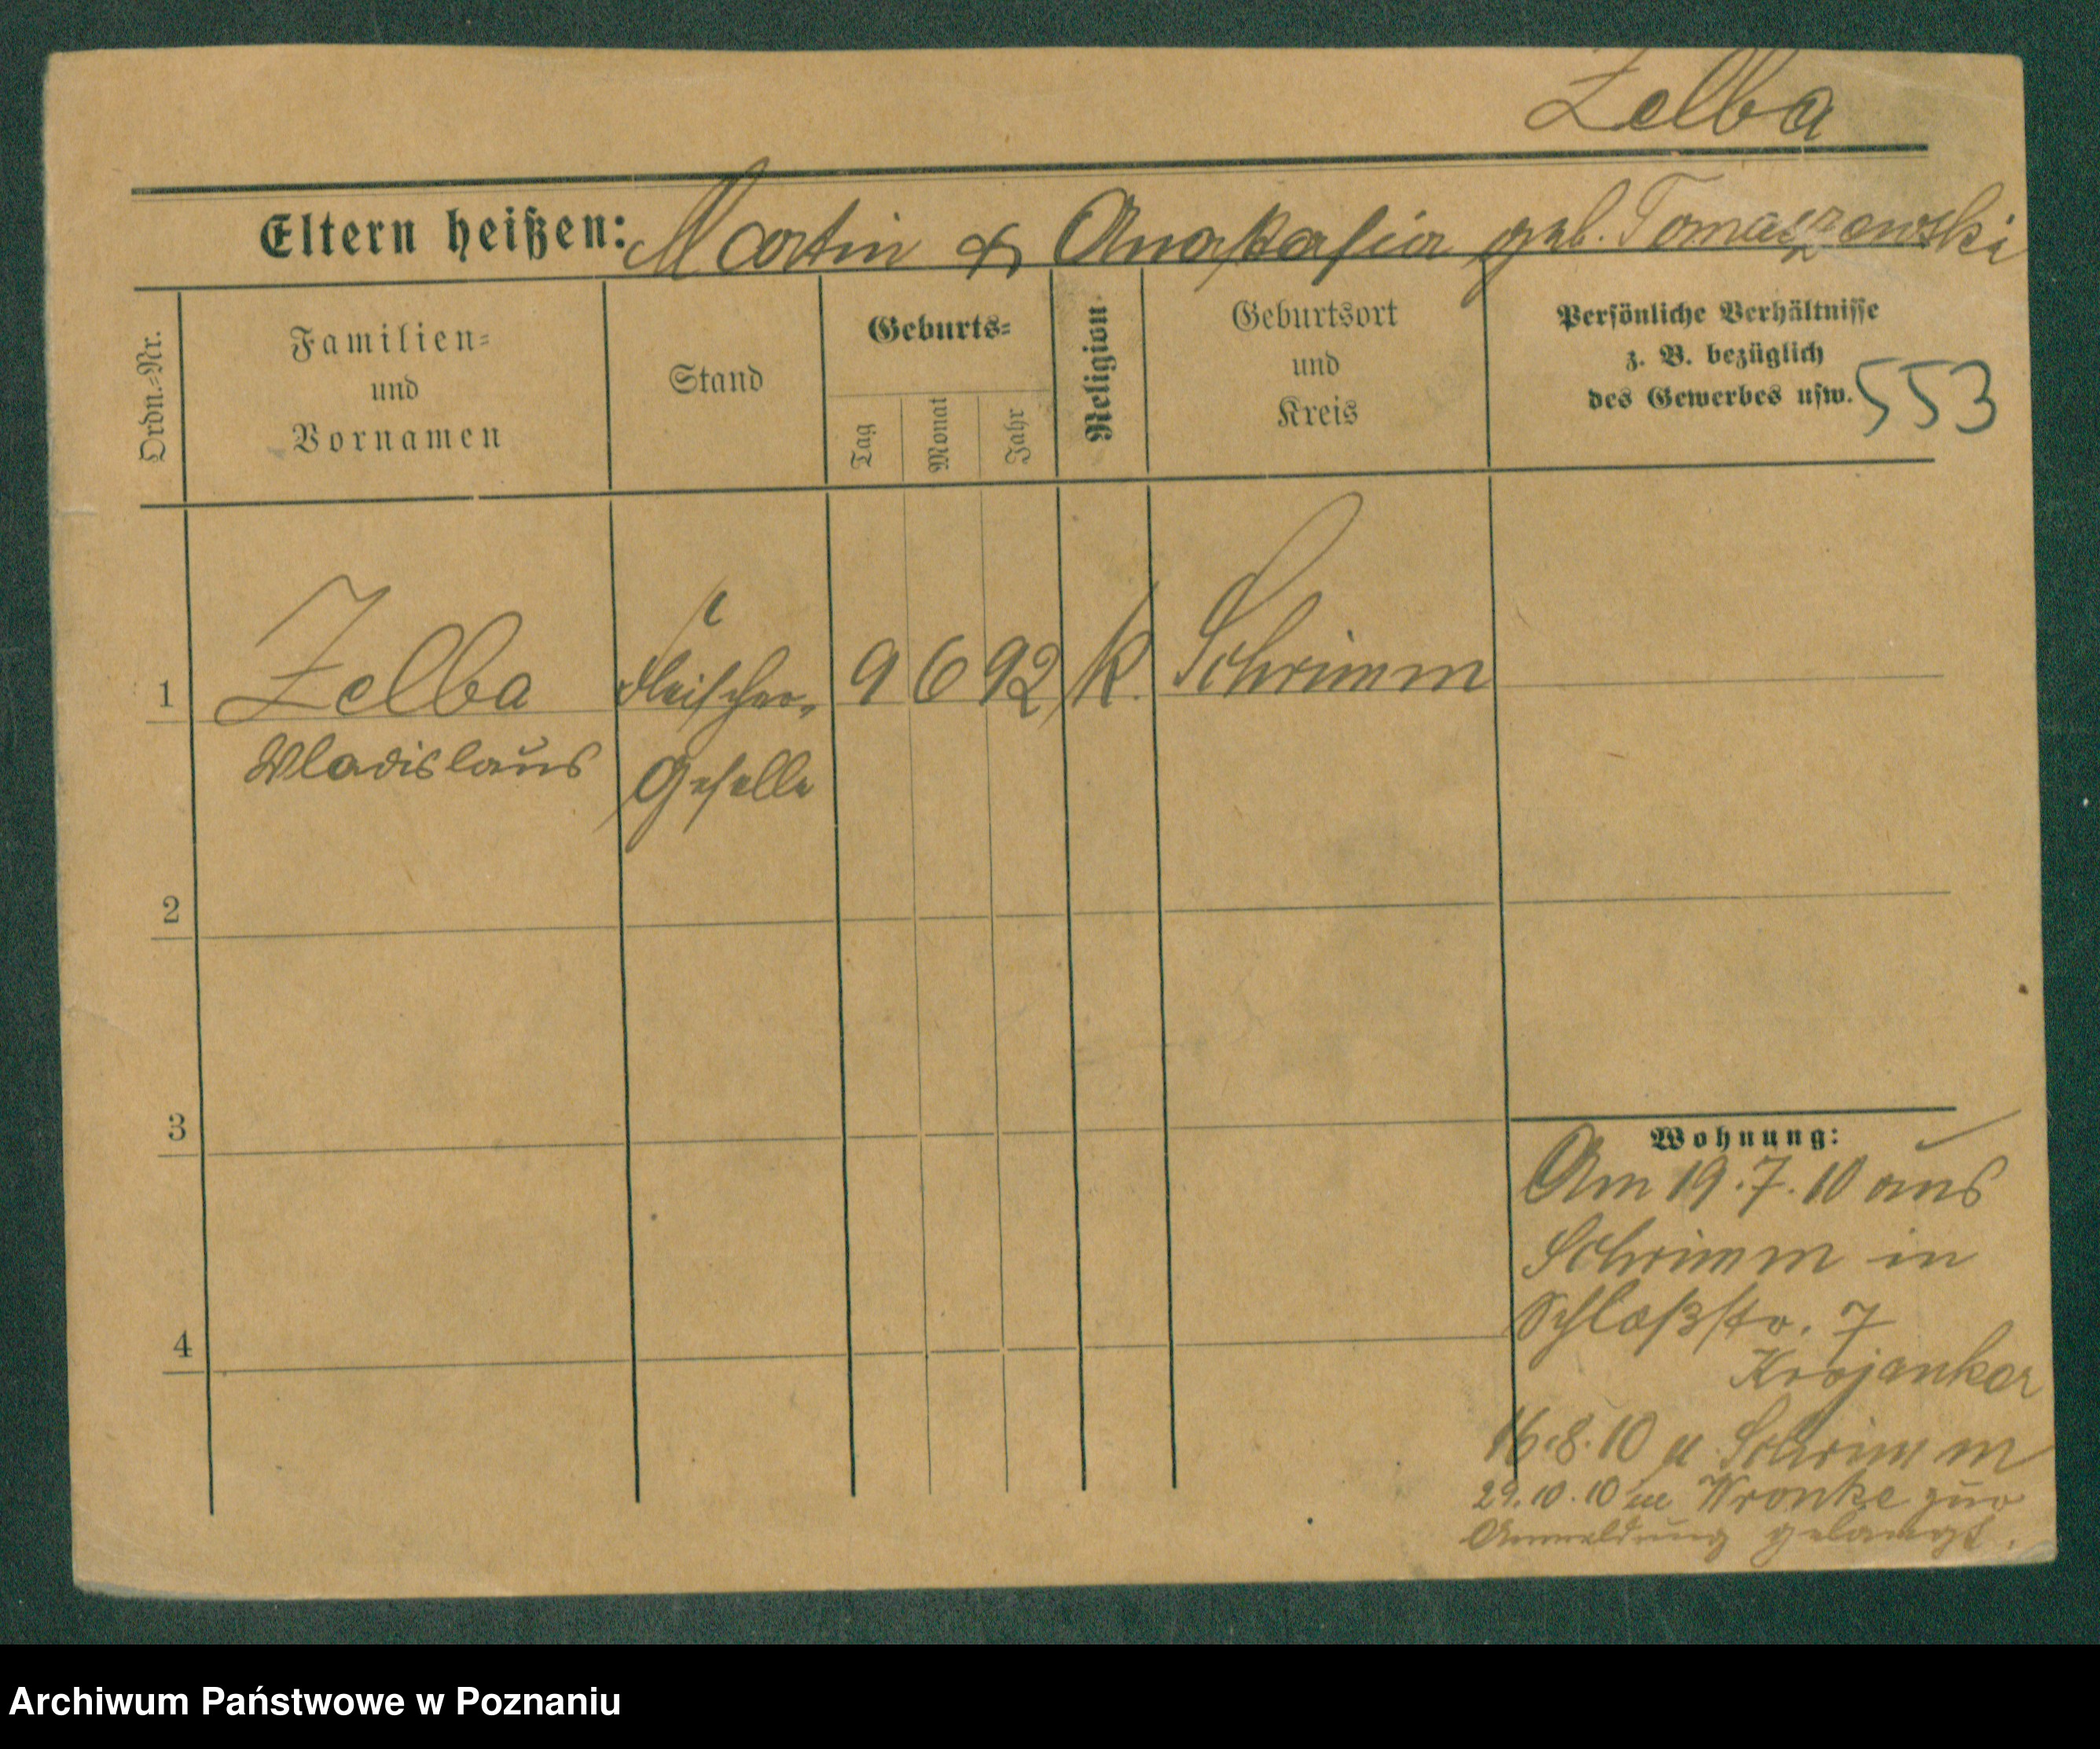 Zelba
Eltern heißen: Martin & Anastasia geb. Tomaszewski
Ordn.=Nr.
Familien=
und
Vornamen
Stand
Geburts=
Tag
Monat
Jahr
Religion
Geburtsort
und
Kreis
Persönliche Verhältnisse
z. B. bezüglich
des Gewerbes usw. 553
1 Zelba Fleischer- 9 6 92 K. Schrimm
Wladislaus Geselle
2
3
Wohnung:
Am 19.7.10 aus
Schrimm in
Schloßstr. 7
4
Krojanker
16.8.10 n. Schrimm
29.10.10 in Wronke zur
Anmeldung gelangt.
Archiwum Państwowe w Poznaniu